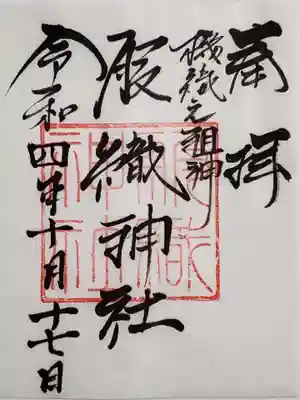 奉拝
機織之祖神
服織神社
令和四年十月十七日